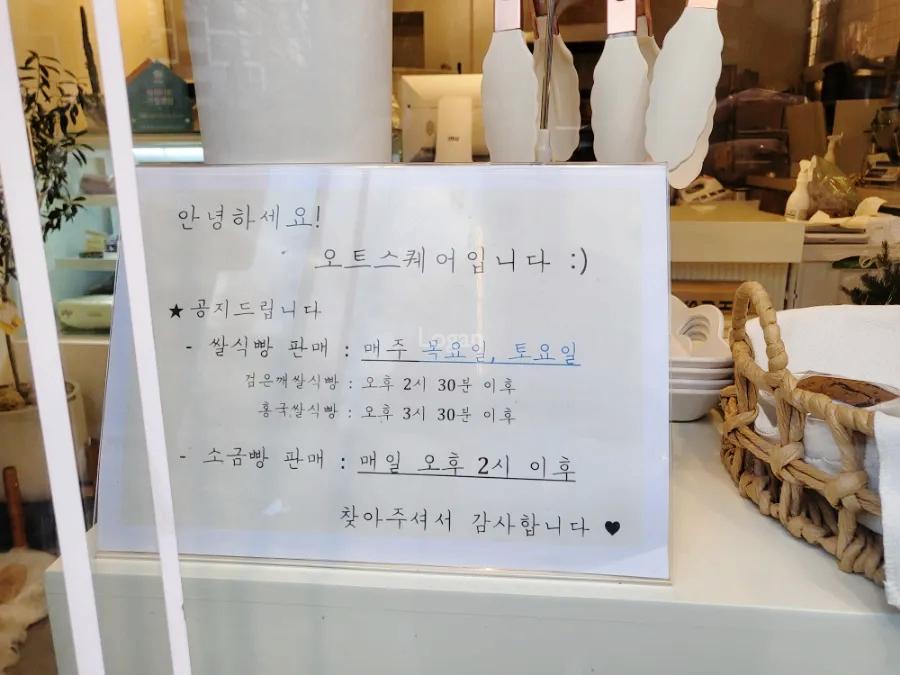 안녕하세요!
오트스퀘어입니다 :)
★ 공지드립니다
- 쌀식빵 판매 : 매주 목요일, 토요일
검은깨쌀식빵 : 오후 2시 30분 이후
홍국쌀식빵 : 오후 3시 30분 이후
- 소금빵 판매 : 매일 오후 2시 이후
찾아주셔서 감사합니다 ♥
Logan